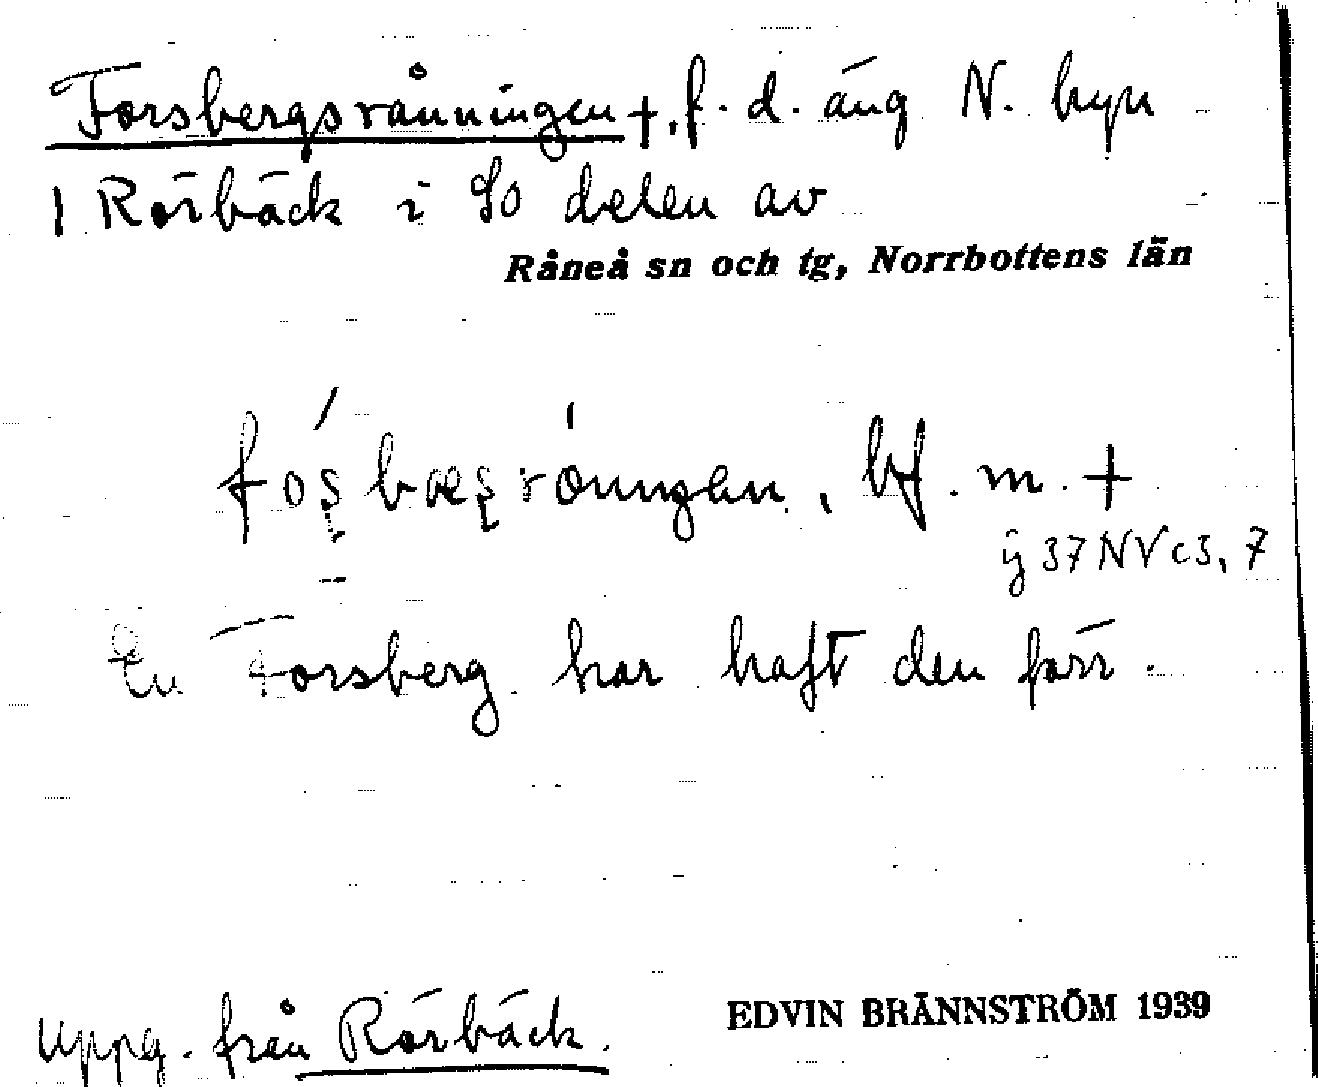 Forsbergsrånningen +, f. d. äng N. byn
1 Rörbäck i SO delen av
Råneå sn och tg, Norrbottens län
foṣbæṣróningen, bf. m. +
ij 37 NV c3, 7
En Forsberg har haft den förr.
Uppg. från Rörbäck.
EDVIN BRÄNNSTRÖM 1939